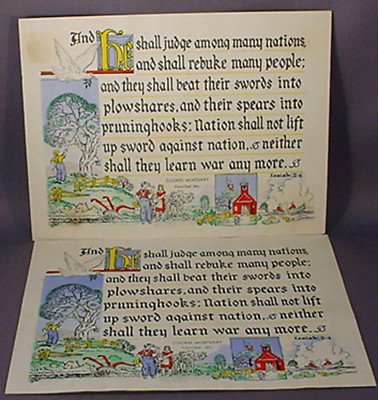 And He shall judge among many nations,
and shall rebuke many people;
and they shall beat their swords into
plowshares, and their spears into
pruninghooks: Nation shall not lift
up sword against nation, neither
shall they learn war any more.
Isaiah: 2-4
MORTUARY
And He shall judge among many nations,
and shall rebuke many people;
and they shall beat their swords into
plowshares, and their spears into
pruninghooks: Nation shall not lift
up sword against nation, neither
shall they learn war any more.
Isaiah: 2-4
MORTUARY